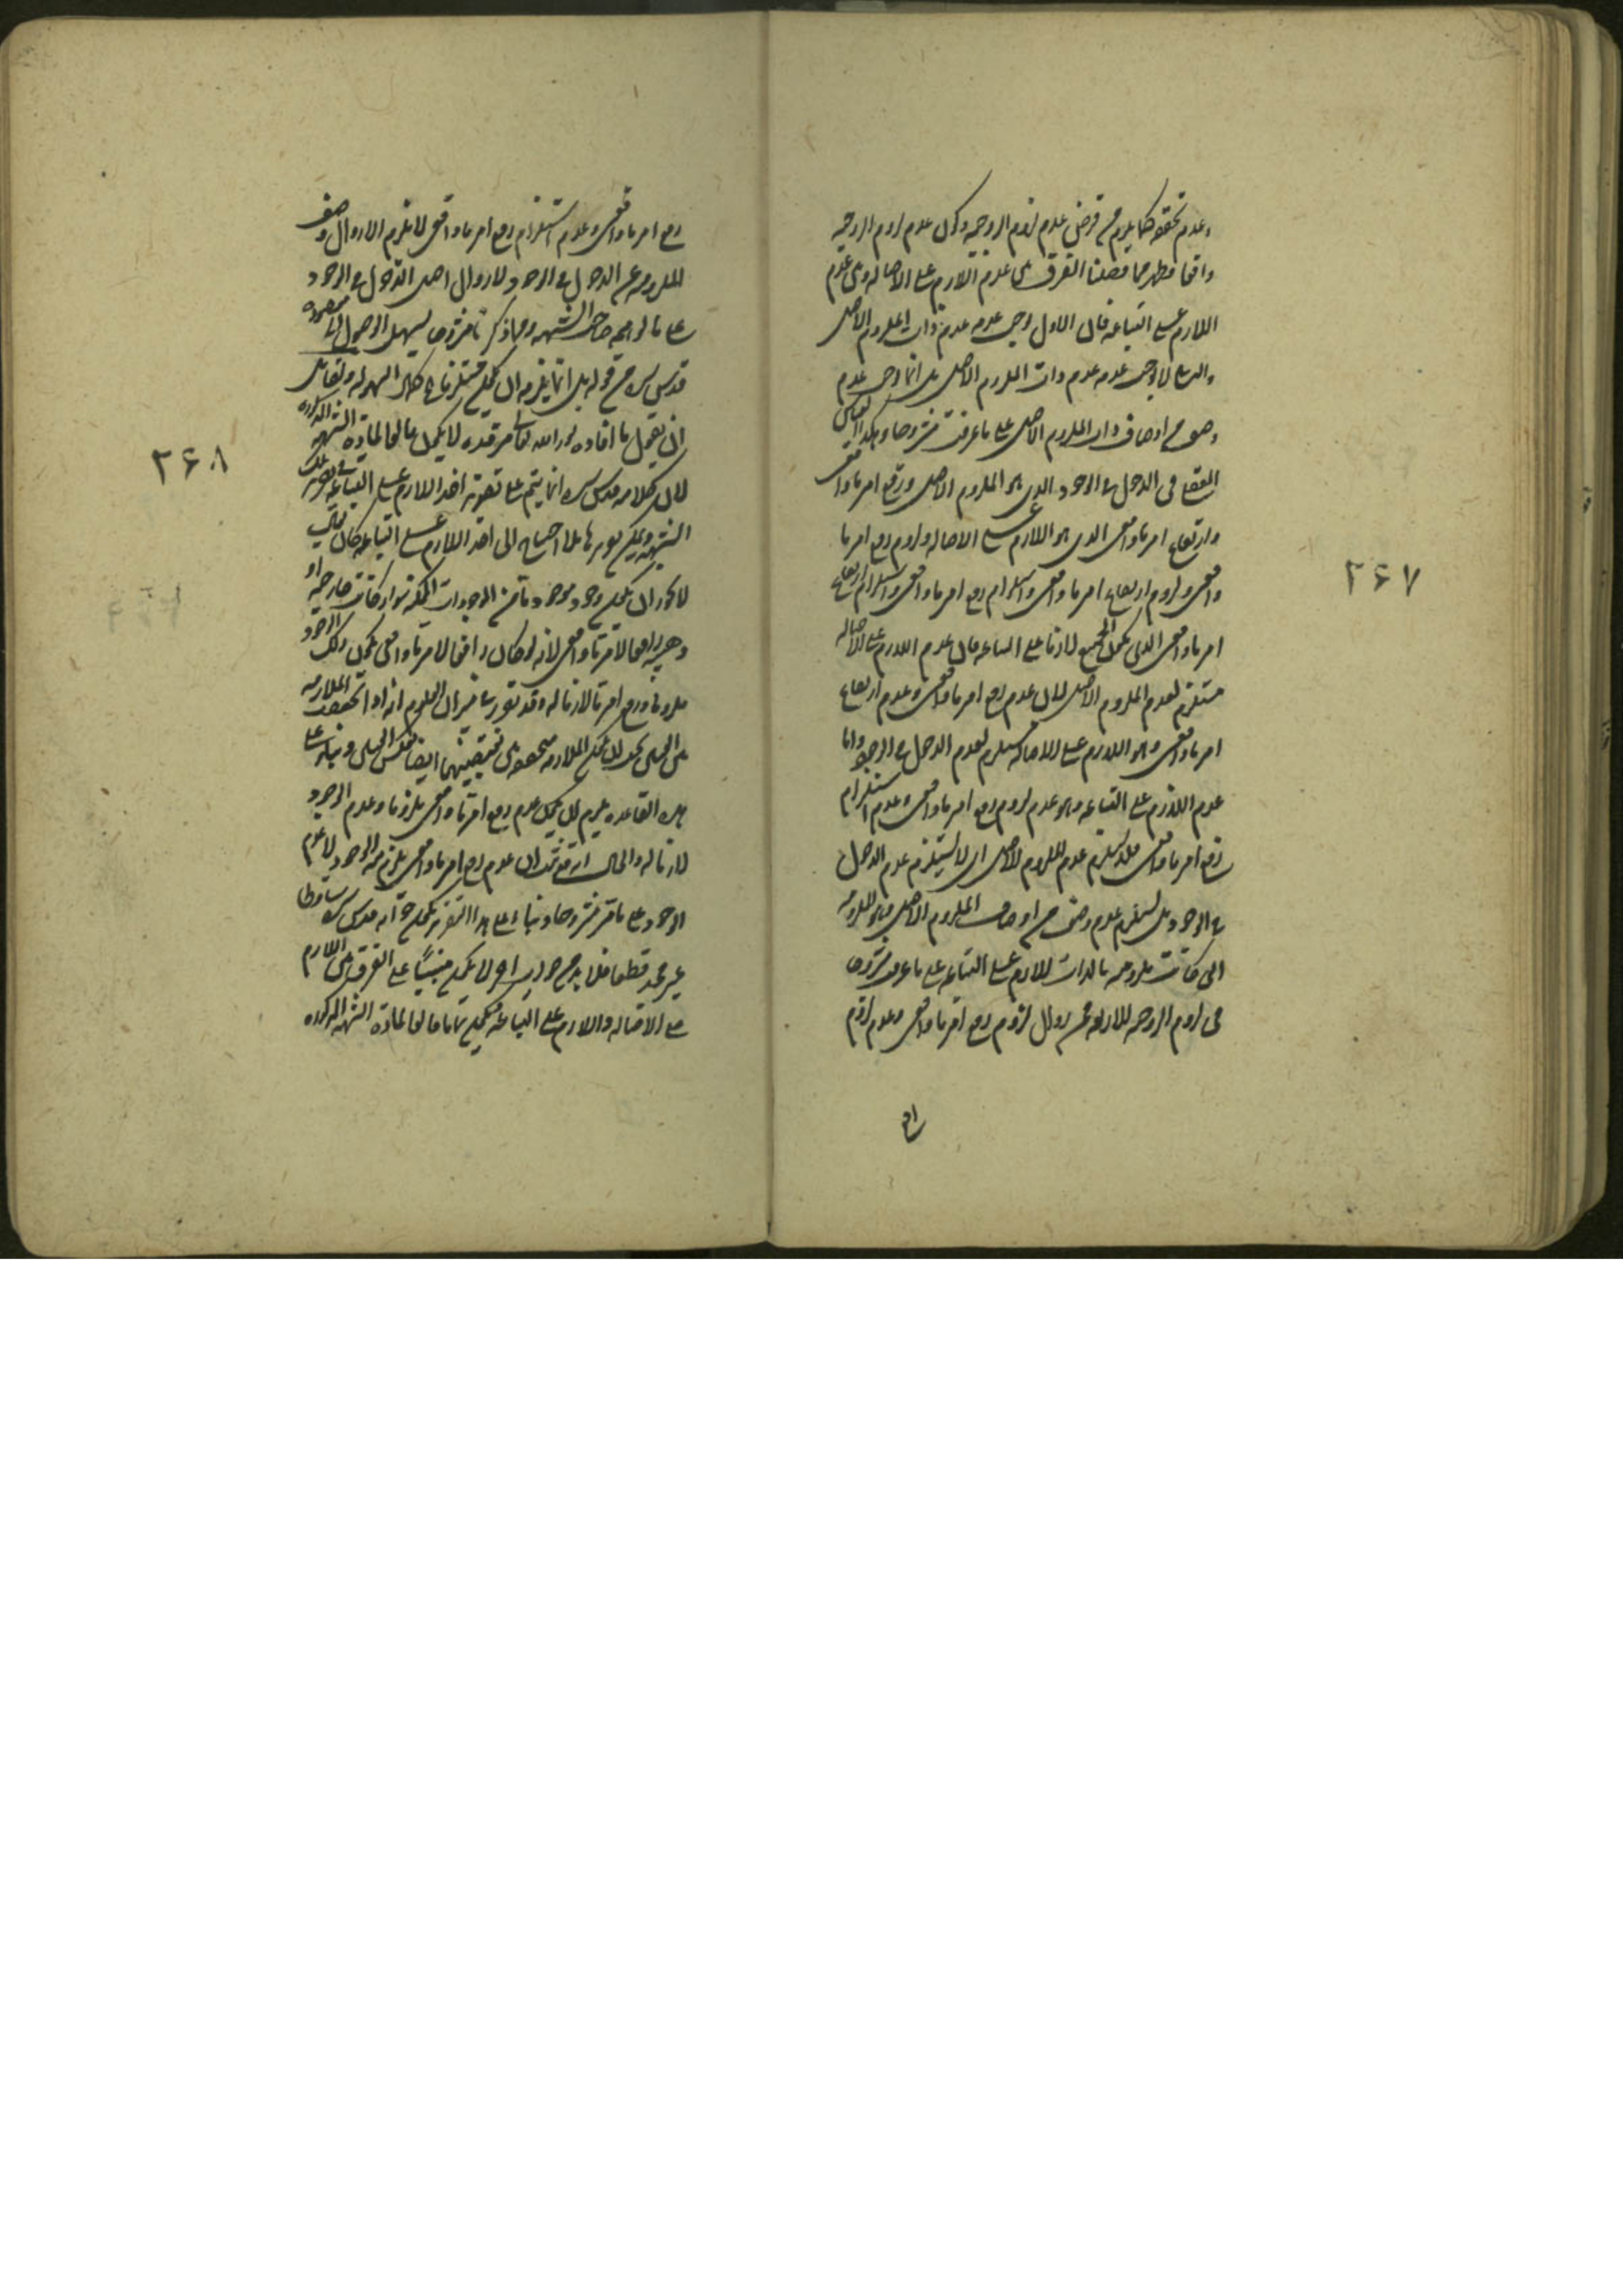 وعدم تحققه كما يلزم من فرض عدم لزوم الزوجية وكون عدم لزوم الزوجية
واقعا فظهر مما فصلنا الفرق بين عدم اللازم على الاصالة وبين عدم
اللازم على التباعة فان الاول يوجب عدمه عدم ذات الملزوم الاصلى
والثانى لا يوجب عدمه عدم ذات الملزوم الاصلى بل انما يوجب عدم
وصف من اوصاف ذات الملزوم الاصلى على ما عرفت مشروحا وهكذا القياس
فى الدخول فى الوجود الذى هو الملزوم الاصلى ورفع امر ما واقعى
وارتفاع امر ما واقعى الذى هو اللازم على الاصالة ولزوم رفع امر ما
واقعى ولزوم ارتفاع امر ما واقعى واستلزام رفع امر ما واقعى واستلزام ارتفاع
امر ما واقعى الذى يكون الجميع لازما على التباعة فان عدم اللازم على الاصالة
مستلزم لعدم الملزوم الاصلى لان عدم رفع امر ما واقعى وعدم ارتفاع
امر ما واقعى وهو اللازم على الاصالة مستلزم لعدم الدخول فى الوجود واما
عدم اللازم على التباعة وهو عدم لزوم رفع امر ما واقعى وعدم استلزام
رفع امر ما واقعى فلا يستلزم عدم الملزوم الاصلى اى لا يستلزم عدم الدخول
فى الوجود بل يستلزم عدم وصف من اوصاف الملزوم الاصلى وهو الملزومية
التى كانت ملزومة بالذات للازم على التباعة على ما عرف مشروحا
فى لزوم الزوجية للاربعة فمن زوال لزوم رفع امر ما واقعى وعدم لزوم
رفع امر ما واقعى وعدم استلزام رفع امر ما واقعى لا يلزم الا زوال وصف
الملزومية عن الدخول فى الوجود لا زوال اصل الدخول فى الوجود
على ما توهمه صاحب الشبهة ومما ذكرنا مشروحا يسهل الوصول الى مقصوده
قدس سره من قوله بل انما يلزمه ان يكون مستلزما فى كمال السهولة ولقائل
ان يقول ما افاده نور الله تعالى مرقده لا يكون حالقا لمادة الشبهة المذكورة
لان كلامه قدس سره انما يتم على تقدير اخذ اللازم على التباعة فى تقرير تلك
الشبهة ويمكن تقريرها بلا احتياج الى اخذ اللازم على التباعة كان يقال
لا يجوز ان يكون وجود موجود ما من الموجودات الممكنة سواء كانت خارجية او
ذهنية رافعا لامر ما واقعى لانه لو كان رافعا لامر ما واقعى يكون ذلك الوجود
ملزوما ورفع امر ما لازما له وقد تقرر فى الميزان العلوم انه اذا تحققت الملازمة
بين الشيئين يجب ان يكون الملازمة متحققة بين نقيضيهما ايضا بعكس النقيض وبناء على
هذه القاعدة يلزم ان يكون عدم رفع امر ما واقعى ملزوما وعدم الوجود
لازما له والحال
الوجود على ما قرر مشروحا وبناء على هذا التقرير يكون جوابه قدس سره ساقطا
غير مجد قطعا فلا بد من جواب اخر لا يكون مبنيا على الفرق بين اللازم
على الاصالة واللازم على التباعة ليكون تاما حالقا لمادة الشبهة المذكورة
رفع
٢۶٧
٢۶٨